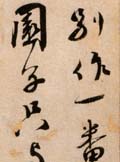 别作一番
園子只与